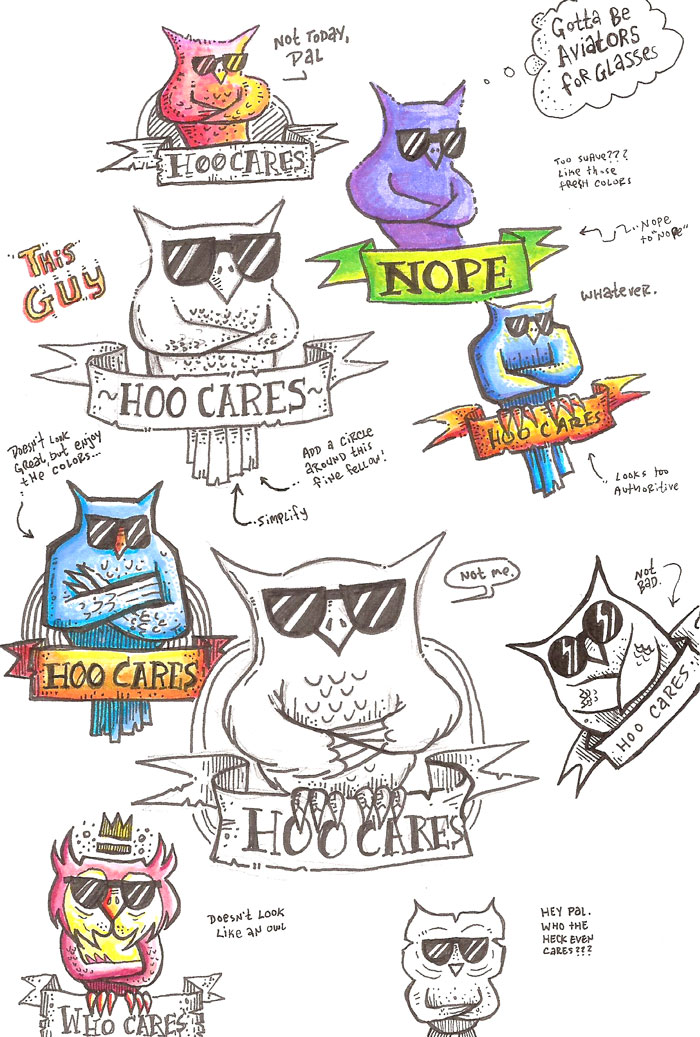 Gotta Be
Aviators
for Glasses
Not Today,
Pal
HOO CARES
Too suave???
Like those
fresh colors
Nope
to "Nope"
NOPE
This
Guy
Whatever.
HOO CARES
~HOO CARES~
Doesn't look
great, but enjoy
the colors...
Add a circle
around this
fine fellow!
Simplify
Looks too
Authoritive
Not me.
Not
Bad.
HOO CARES
HOO CARES
HOO CARES
Doesn't look
like an owl
Hey Pal.
Who the
heck even
cares???
WHO CARES